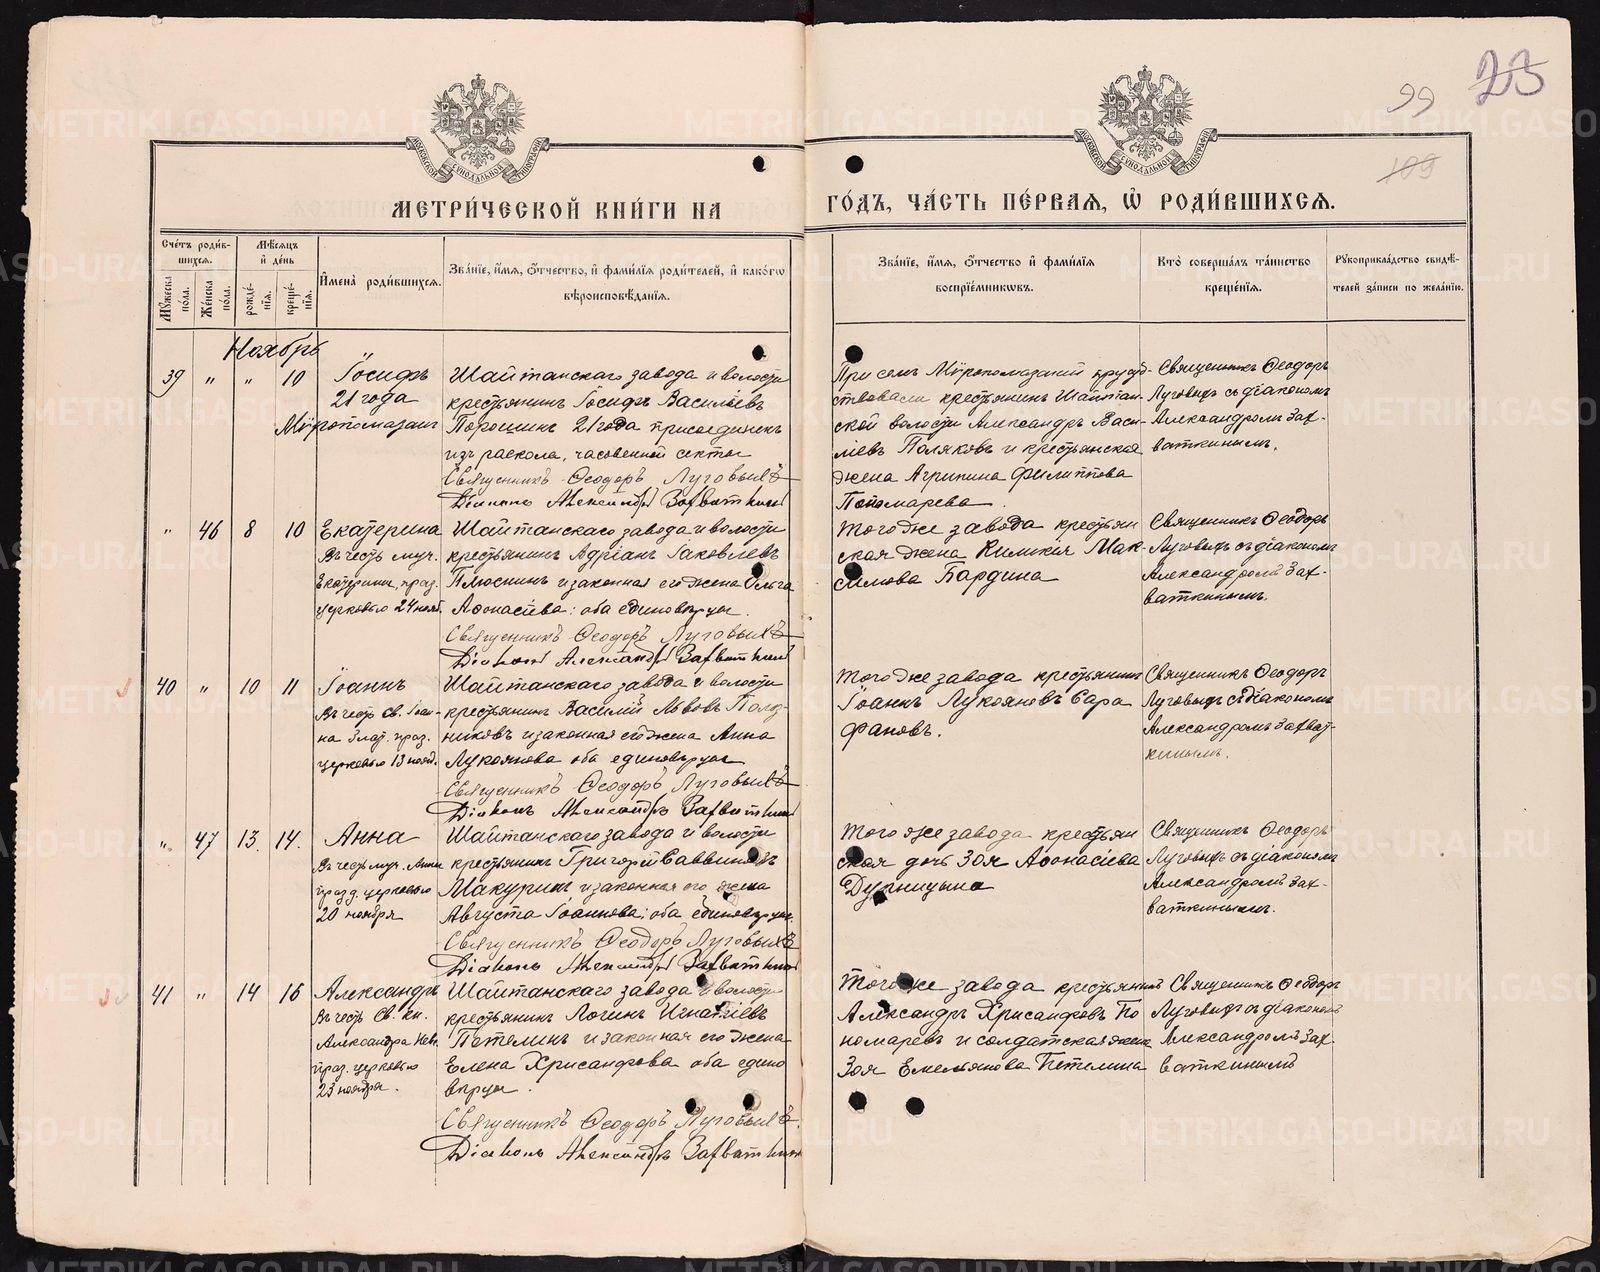 23
99
109
МЕТРИ́ЧЕСКОЙ КНИ́ГИ НА ГО́ДЪ, ЧА́СТЬ ПЕ́РВАѦ, Ѡ҆ РОДИ́ВШИХСѦ.
МОСКОВСКОЙ СѴНОДАЛЬНОЙ ТИПОГРАФІИ
МОСКОВСКОЙ СѴНОДАЛЬНОЙ ТИПОГРАФІИ
Сче́тъ роди́в-
шихсѧ.
Мꙋ́жеска по́ла.
Же́нска по́ла.
Мѣ́сѧцъ
и҆ де́нь
рожде́-нїѧ.
креще́-нїѧ.
И҆мена̀ роди́вшихсѧ.
Зва́нїе, и҆́мѧ, ѻ҆́тчество, и҆ фами́лїѧ роди́телей, и҆ како́гѡ
вѣроисповѣ́данїѧ.
Зва́нїе, и҆́мѧ, ѻ҆́тчество и҆ фами́лїѧ
воспрїе́мникѡвъ.
Кто̀ соверша́лъ та́инство
креще́нїѧ.
Рꙋкоприкла́дство свидѣ́-
телей за́писи по жела́нїю.
Ноябрь
39 " " 10
Іосифъ
21 года
Мѵропомазанъ
Шайтанскаго завода и волости
крестьянинъ Іосифъ Васильевъ
Порошинъ 21 года присоединенъ
изъ раскола, часовенной секты
Священникъ Ѳеодоръ Луговыхъ
Діаконъ Александръ Захваткинъ
При семъ Мѵропомазаніи присут-
ствовали крестьянинъ Шайтан-
ской волости Александръ Васи-
льевъ Поляковъ и крестьянская
жена Агрипина Филиппова
Пономарева
Священникъ Ѳеодоръ
Луговыхъ съ діакономъ
Александромъ Зах-
ваткинымъ.
" 46 8 10
Екатерина
Въ честь муч.
Екатерины, праз.
церковью 24 нояб.
Шайтанскаго завода и волости
крестьянинъ Адріанъ Іаковлевъ
Плюснинъ и законная его жена Ольга
Аѳонасіева: оба единоверцы.
Священникъ Ѳеодоръ Луговыхъ
Діаконъ Александръ Захваткинъ
Того же завода крестьян
ская жена Мак-
симова Бардина
Священникъ Ѳеодоръ
Луговыхъ съ діакономъ
Александромъ Зах-
ваткинымъ.
40 " 10 11
Іоаннъ
Въ честь Св. Іоан-
на Злат. праз.
церковью 13 нояб.
Шайтанскаго завода и волости
крестьянинъ Василій Львовъ Полд-
никовъ и законная его жена Анна
Лукоянова оба единоверцы
Священникъ Ѳеодоръ Луговыхъ
Діаконъ Александръ Захваткинъ
Того же завода крестьянинъ
Іоаннъ Лукояновъ Сара
фановъ.
Священникъ Ѳеодоръ
Луговыхъ съ діакономъ
Александромъ Захват-
кинымъ.
" 47 13. 14.
Анна
Въ честь муч. Анны
празд. церковью
20 ноября
Шайтанскаго завода и волости
крестьянинъ Григорій Саввиновъ
Макуринъ и законная его жена
Августа Іоаннова; оба единоверцы.
Священникъ Ѳеодоръ Луговыхъ
Діаконъ Александръ Захваткинъ
Того же завода крестьян
ская дочь Зоя Аѳонасіева
Дурницына
Священникъ Ѳеодоръ
Луговыхъ съ діакономъ
Александромъ Зах-
ваткинымъ.
41 " 14 16
Александръ
Въ честь Св. Кн.
Александра Нев.
праз. церковью
23 ноября.
Шайтанскаго завода и волости
крестьянинъ Логинъ Игнатіевъ
Петелинъ и законная его жена
Елена Хрисанфова оба едино
верцы.
Священникъ Ѳеодоръ Луговыхъ
Діаконъ Александръ Захваткинъ
Того же завода крестьянинъ
Александръ Хрисанфовъ По
номаревъ и солдатская жена
Зоя Емельянова Петелина
Священникъ Ѳеодоръ
Луговыхъ съ діакономъ
Александромъ Зах-
ваткинымъ
METRIKI.GASO-URAL.RU